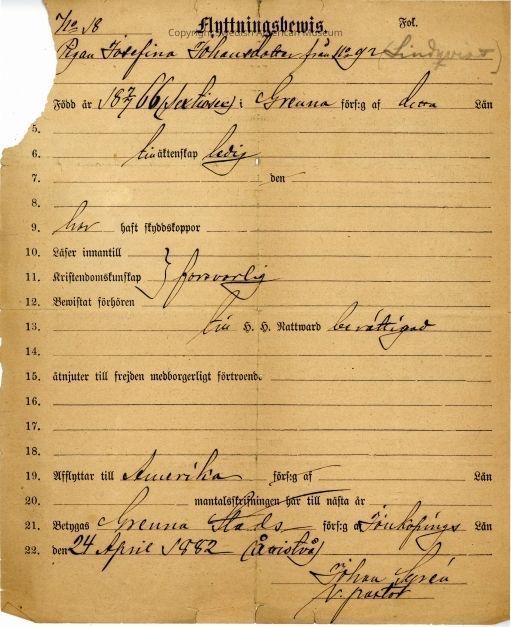 No 18 Flyttningsbewis. Fol.
Copyright Swedish American Museum
Pigan Josefina Johansdotter från No 92 (Lindqvist)
Född år 18 2/7 66 (sextiosex) i Grenna förs:g af dera Län
5.
6. till äktenskap ledig
7. den
8.
9. har haft skyddskoppor
10. Läser innantill
11. Kristendomskunskap } försvarlig
12. Bewistat förhören
13. till H. H. Nattward berättigad
14.
15. åtnjuter till frejden medborgerligt förtroende.
16.
17.
18.
19. Afflyttar till Amerika förs:g af Län
20. mantalsskrifningen har till nästa år
21. Betygas Grenna Stads förs:g af Jönköpings Län
22. den 24 April 1882 (åttitvå)
Johan
v. pastor